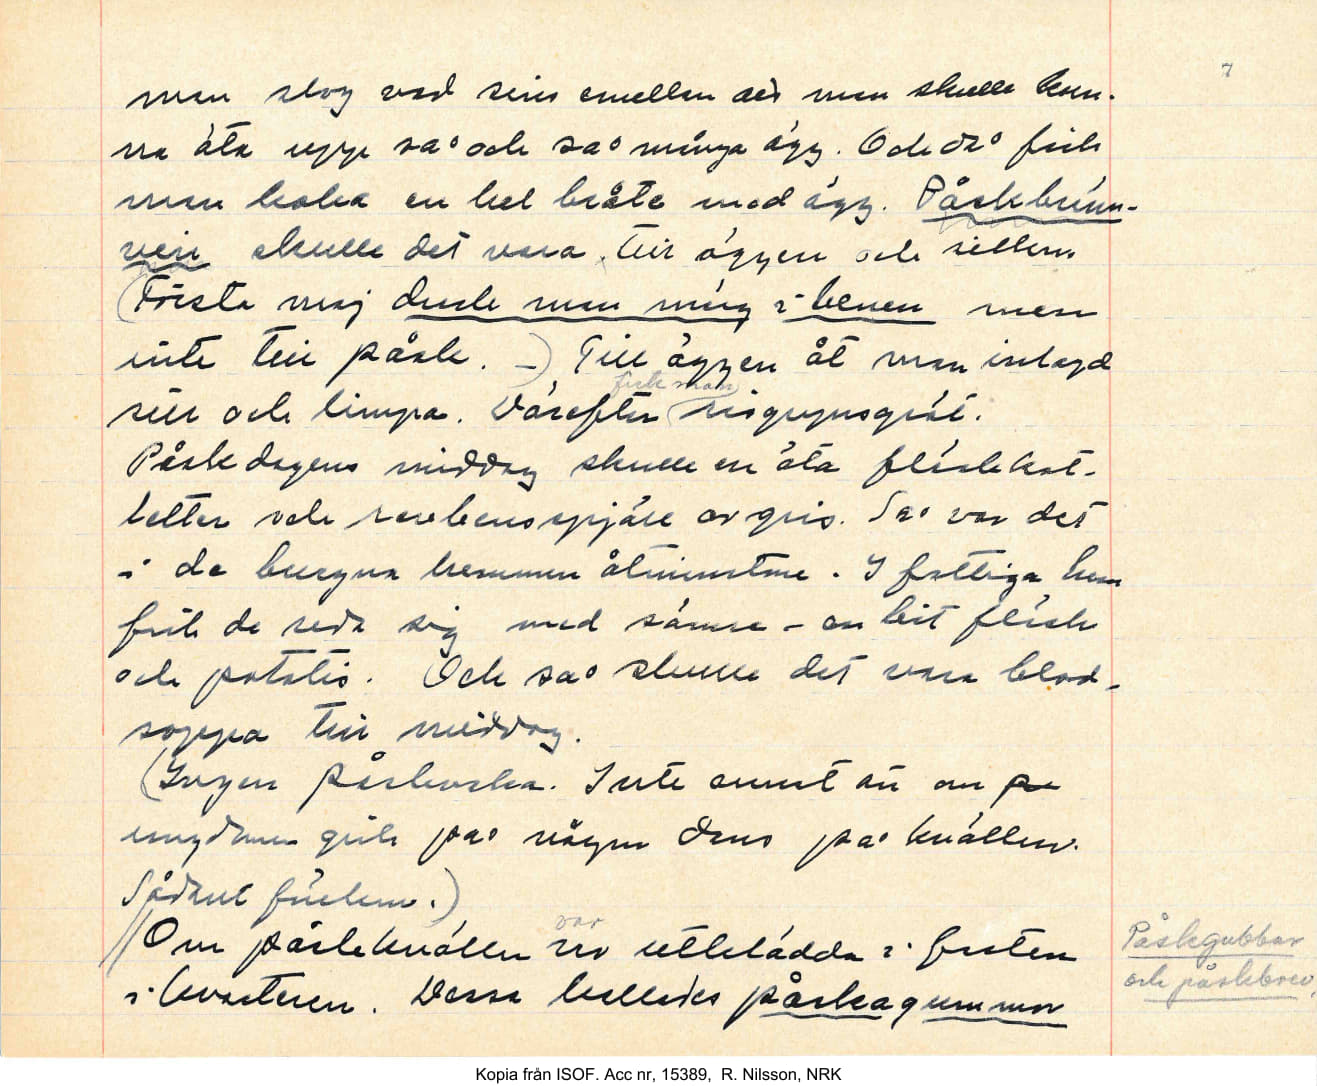 7
man slog vad sins emellan att man skulle kun-
na äta upp så och så många ägg. Och då fick
man koka en hel bråte med ägg. Påskbränn-
vin skulle det vara till äggen och sillen.
(Första maj drack man märg i benen men
inte till påsk. –) Till äggen åt man inlagd
fick man
sill och limpa. Därefter risgrynsgröt.
Påskdagens middag skulle en äta fläskkot-
letter och revbensspjäll av gris. Så var det
i de burgna hemmen åtminstone. I fattiga hem
fick de reda sig med sämre – en bit fläsk
och potatis. Och så skulle det vara blod-
soppa till middag.
(Ingen påskvaka. Inte annat än om
ungdomen gick på någon dans på kvällen.
Sådant förekom.)
var
Om påskkvällen utklädda i farten
i kvarteren. Dessa kallades påskagummor
Påskgubbar
och påskbrev.
Kopia från ISOF. Acc nr, 15389, R. Nilsson, NRK